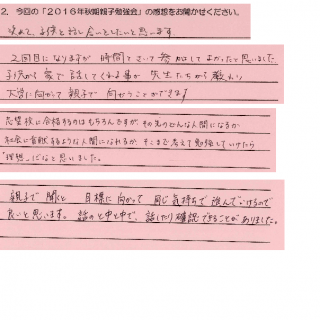 2. 今回の「2016年秋期親子勉強会」の感想をお聞かせください。
改めて、子供と話し合としたいと思います
2回目になりますが 時間をさいて参加してよかったと思いました
子供から家で話してくれる事が 先生たちから教わり
大学に向かって 親子で 向かうことができます
志望校に合格するのはもちろんですが、その先のどんな人間になるか
社会に貢献するような人間になれるか、そこまで考えて勉強していけたら
"理想"だなと思いました。
親子で 聞くと 目標に向かって 同じ気持ちで 進んでいけるので
良いと思います。 話の と中と中で、話したり確認できることがありました。